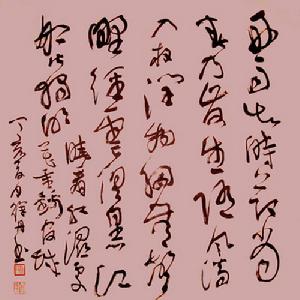 好雨知時節當
春乃發生隨風潛
入夜潤物細無聲
野徑雲俱黑江
船火獨明
曉看紅濕處
花重錦官城
丁亥年